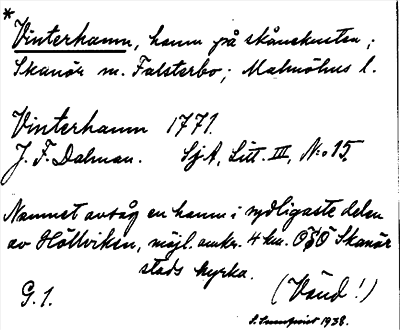 *
Vinterhamn, hamn på skånekusten;
Skanör m. Falsterbo; Malmöhus l.
Vinterhamn 1771.
J. F. Dalman. SjA, Litt. III, N:o 15.
Namnet avsåg en hamn i sydligaste delen
av Höllviken, möjl. omkr. 4 km. OSO Skanör
stads kyrka.
G. 1. (Vänd!)
1938.